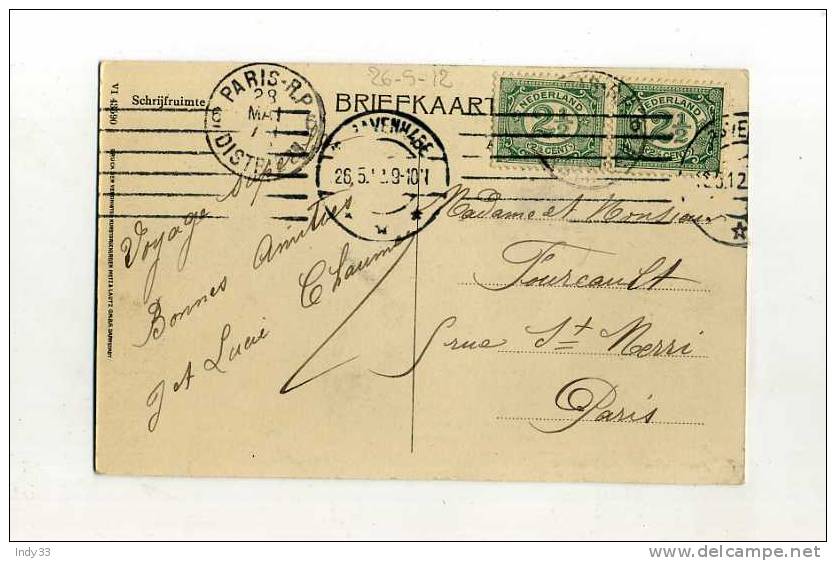 26-5-12
BRIEFKAART
Schrijfruimte
PARIS-R.P.
28
MAI
DISTR
'S GRAVENHAGE
26.5.12.9-10N
NEDERLAND
2½
2½ CENT
NEDERLAND
2½
2½ CENT
VI 43090
Voyage
Bonnes Amitiés
J et Lucie Chaumac
Madame et Monsieur
Fourcault
5 rue St Merri
Paris
Indy33
www.delcampe.net